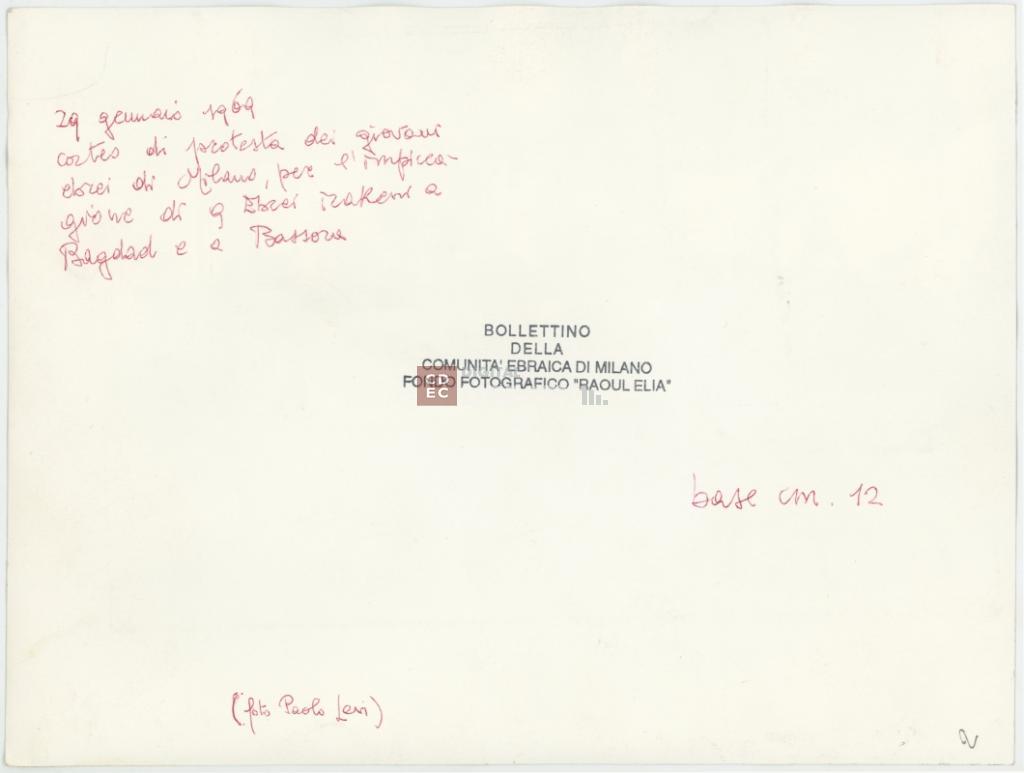 29 gennaio 1969
corteo di protesta dei giovani
ebrei di Milano, per l'impicca-
gione di 9 Ebrei irakeni a
Bagdad e a Bassora
BOLLETTINO
DELLA
COMUNITA' EBRAICA DI MILANO
FONDO FOTOGRAFICO "RAOUL ELIA"
CD
EC
DIGITAL
base cm. 12
(foto Paolo Levi)